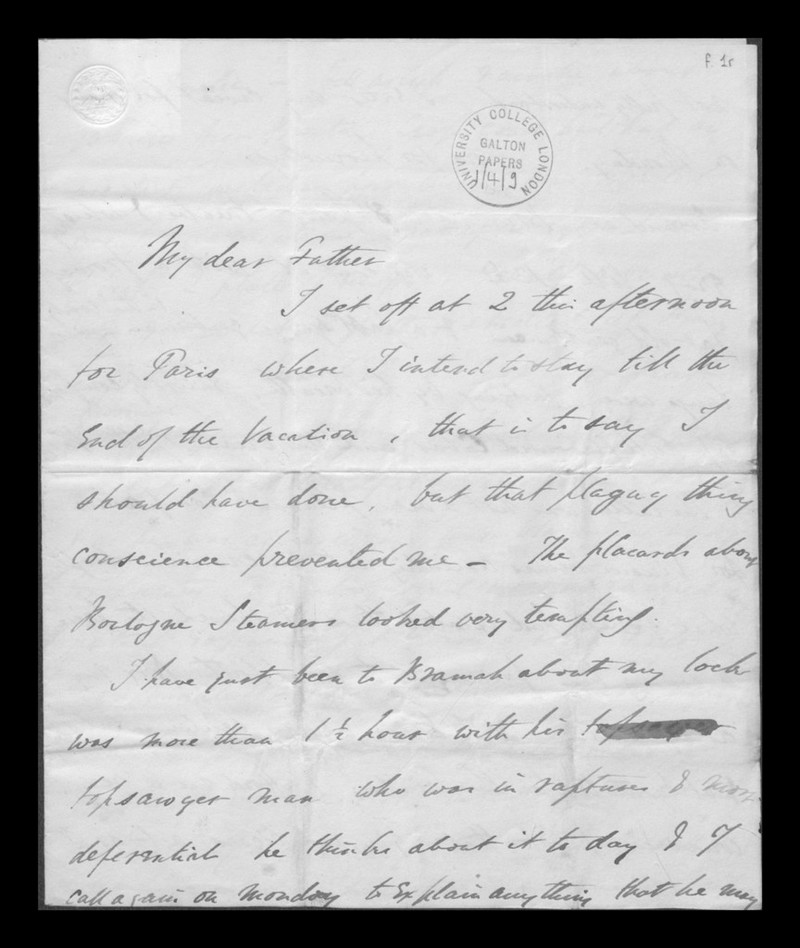 f. 1r
UNIVERSITY COLLEGE LONDON
GALTON
PAPERS
1/4/9
My dear Father
I set off at 2 this afternoon
for Paris where I intend to stay till the
End of the Vacation, that is to say I
should have done, but that plaguy thing
conscience prevented me – The placards about
Boulogne Steamers looked very tempting.
I have just been to Bramah about my lock
was more than 1½ hour with his
topsawyer man who was in raptures & most
deferential he thinks about it to day & I
call again on Monday to Explain anything that he may